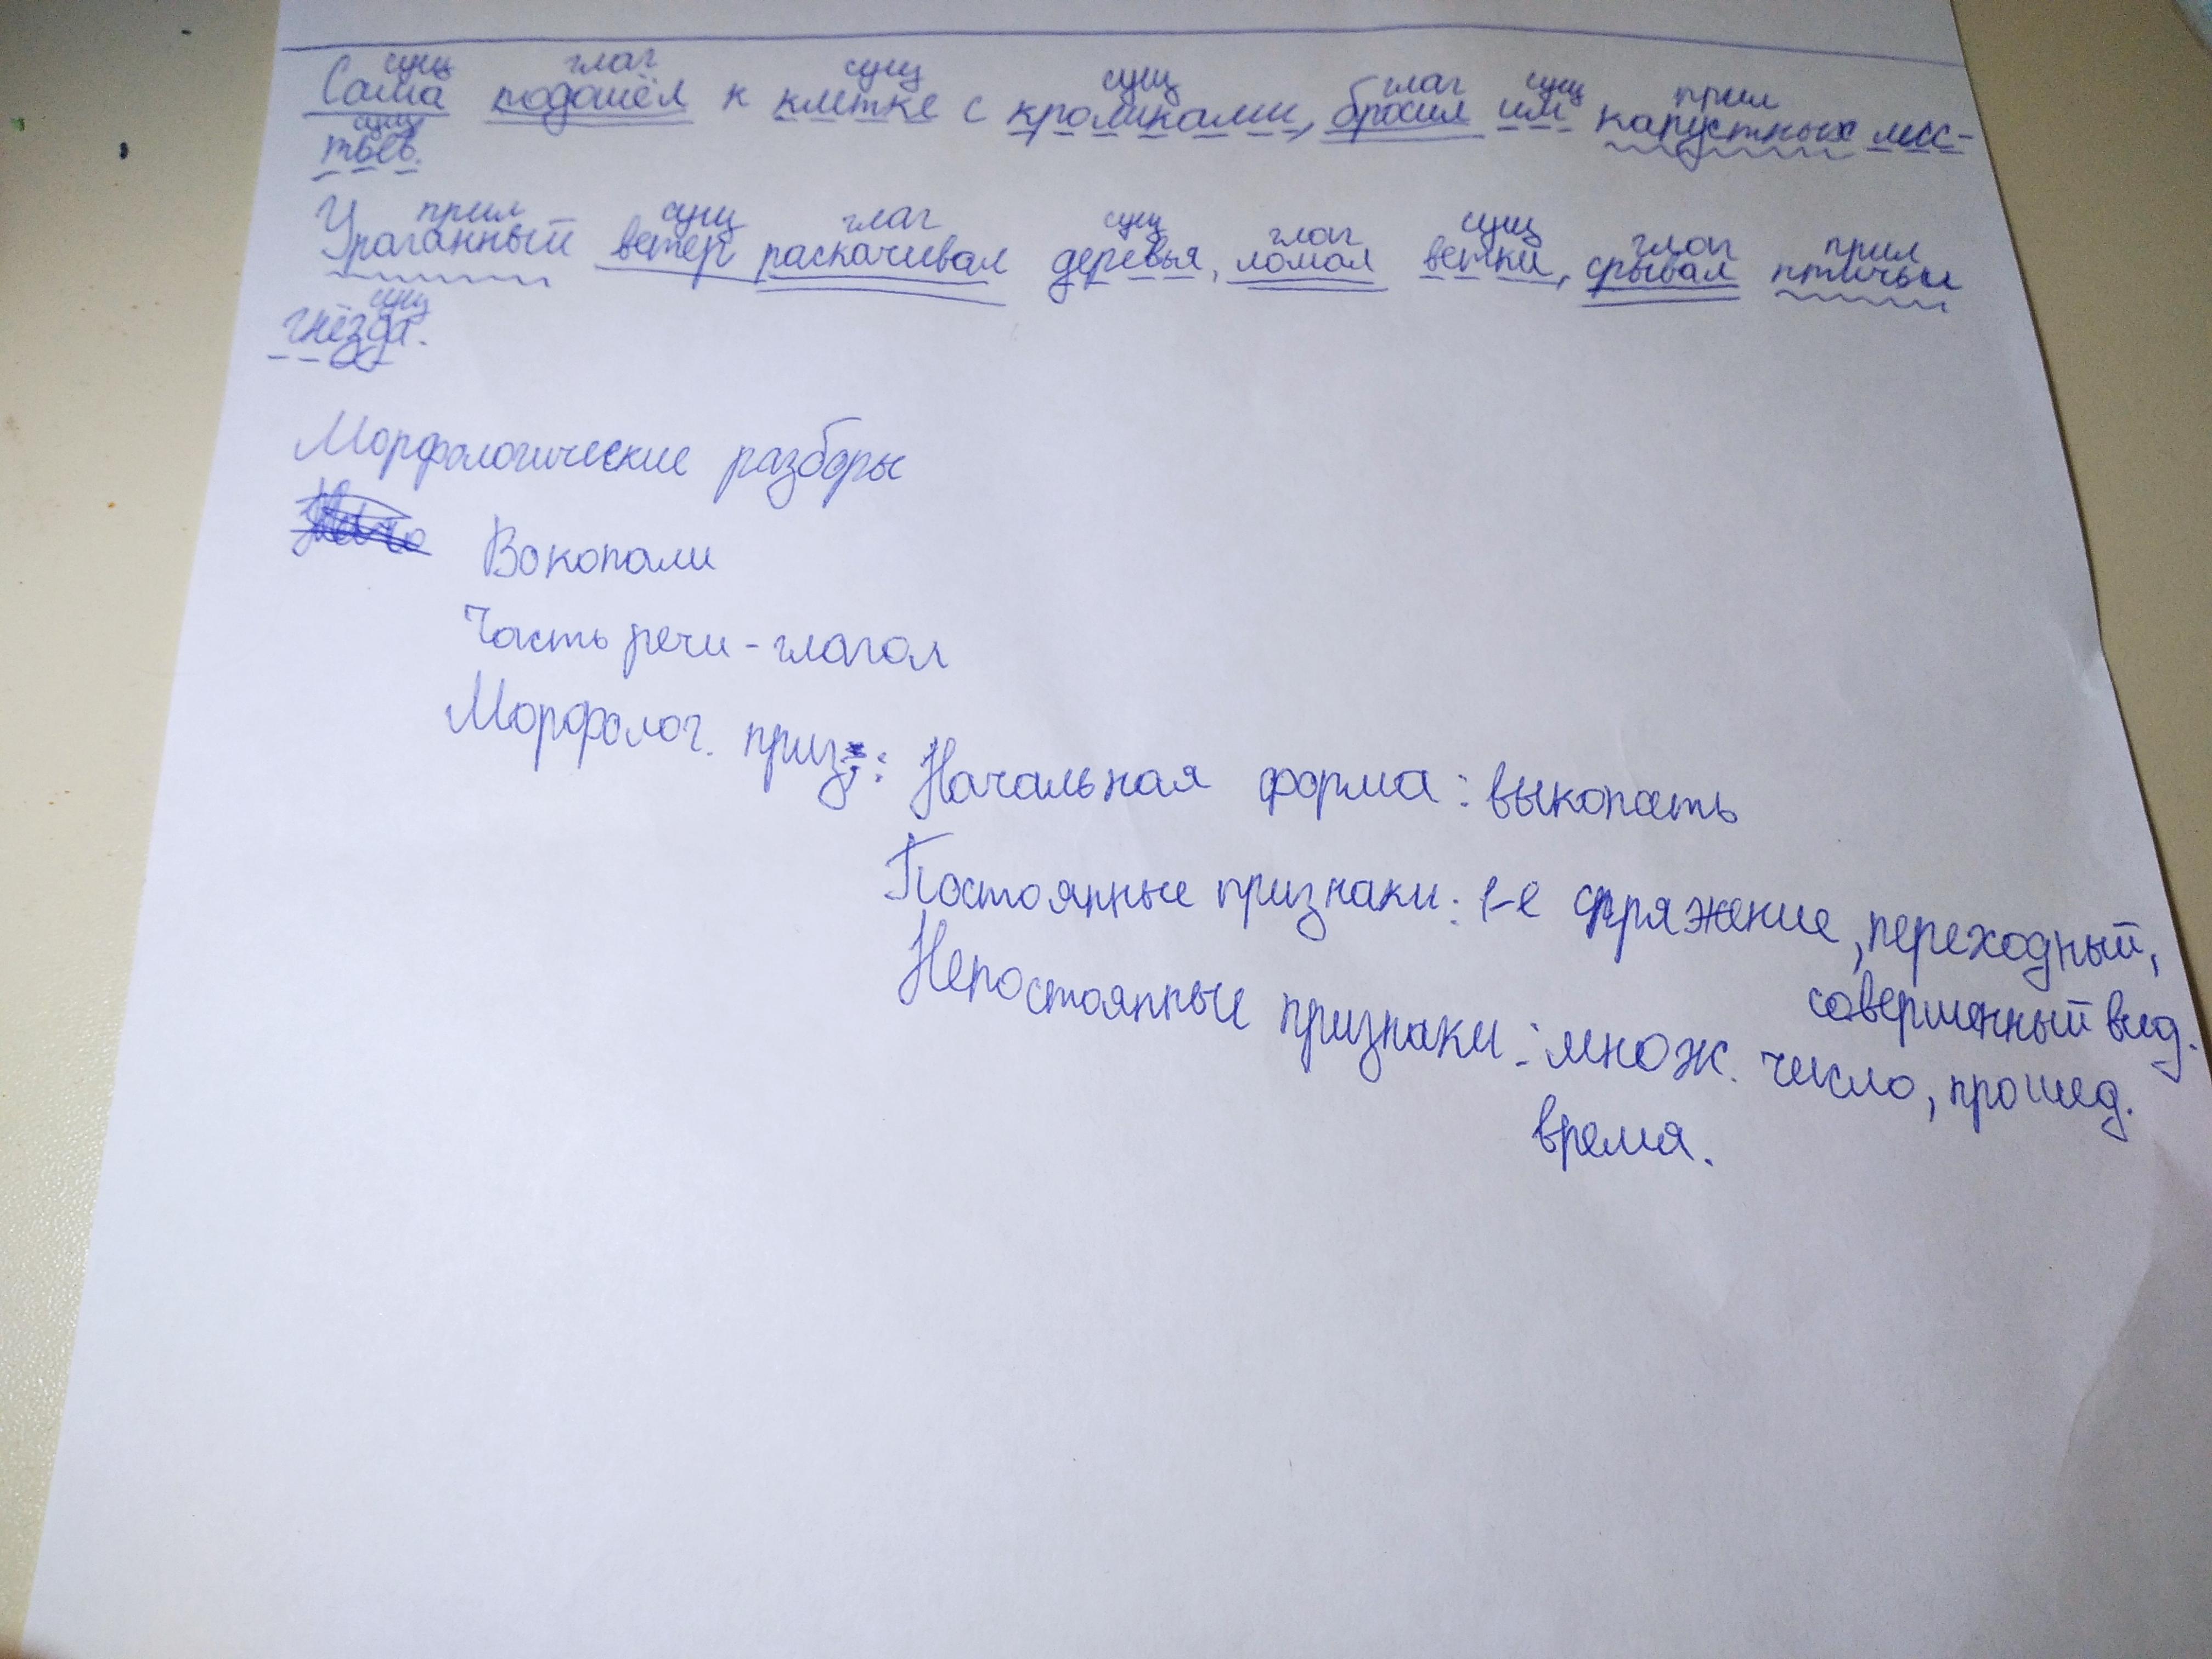 сущ глаг сущ сущ глаг сущ прил
Саша подошёл к клетке с кроликами, бросил им капустных лис-
сущ
тьев.
прил сущ глаг сущ глаг сущ глаг прил
Ураганный ветер раскачивал деревья, ломал ветки, срывал птичьи
сущ
гнёзда.
Морфологические разборы
Вокопали
Часть речи - глагол
Морфолог. приз.: Начальная форма: выкопать
Постоянные признаки: 1-е спряжение, переходный,
совершенный вид.
Непостоянные признаки: множ. число, прошед.
время.